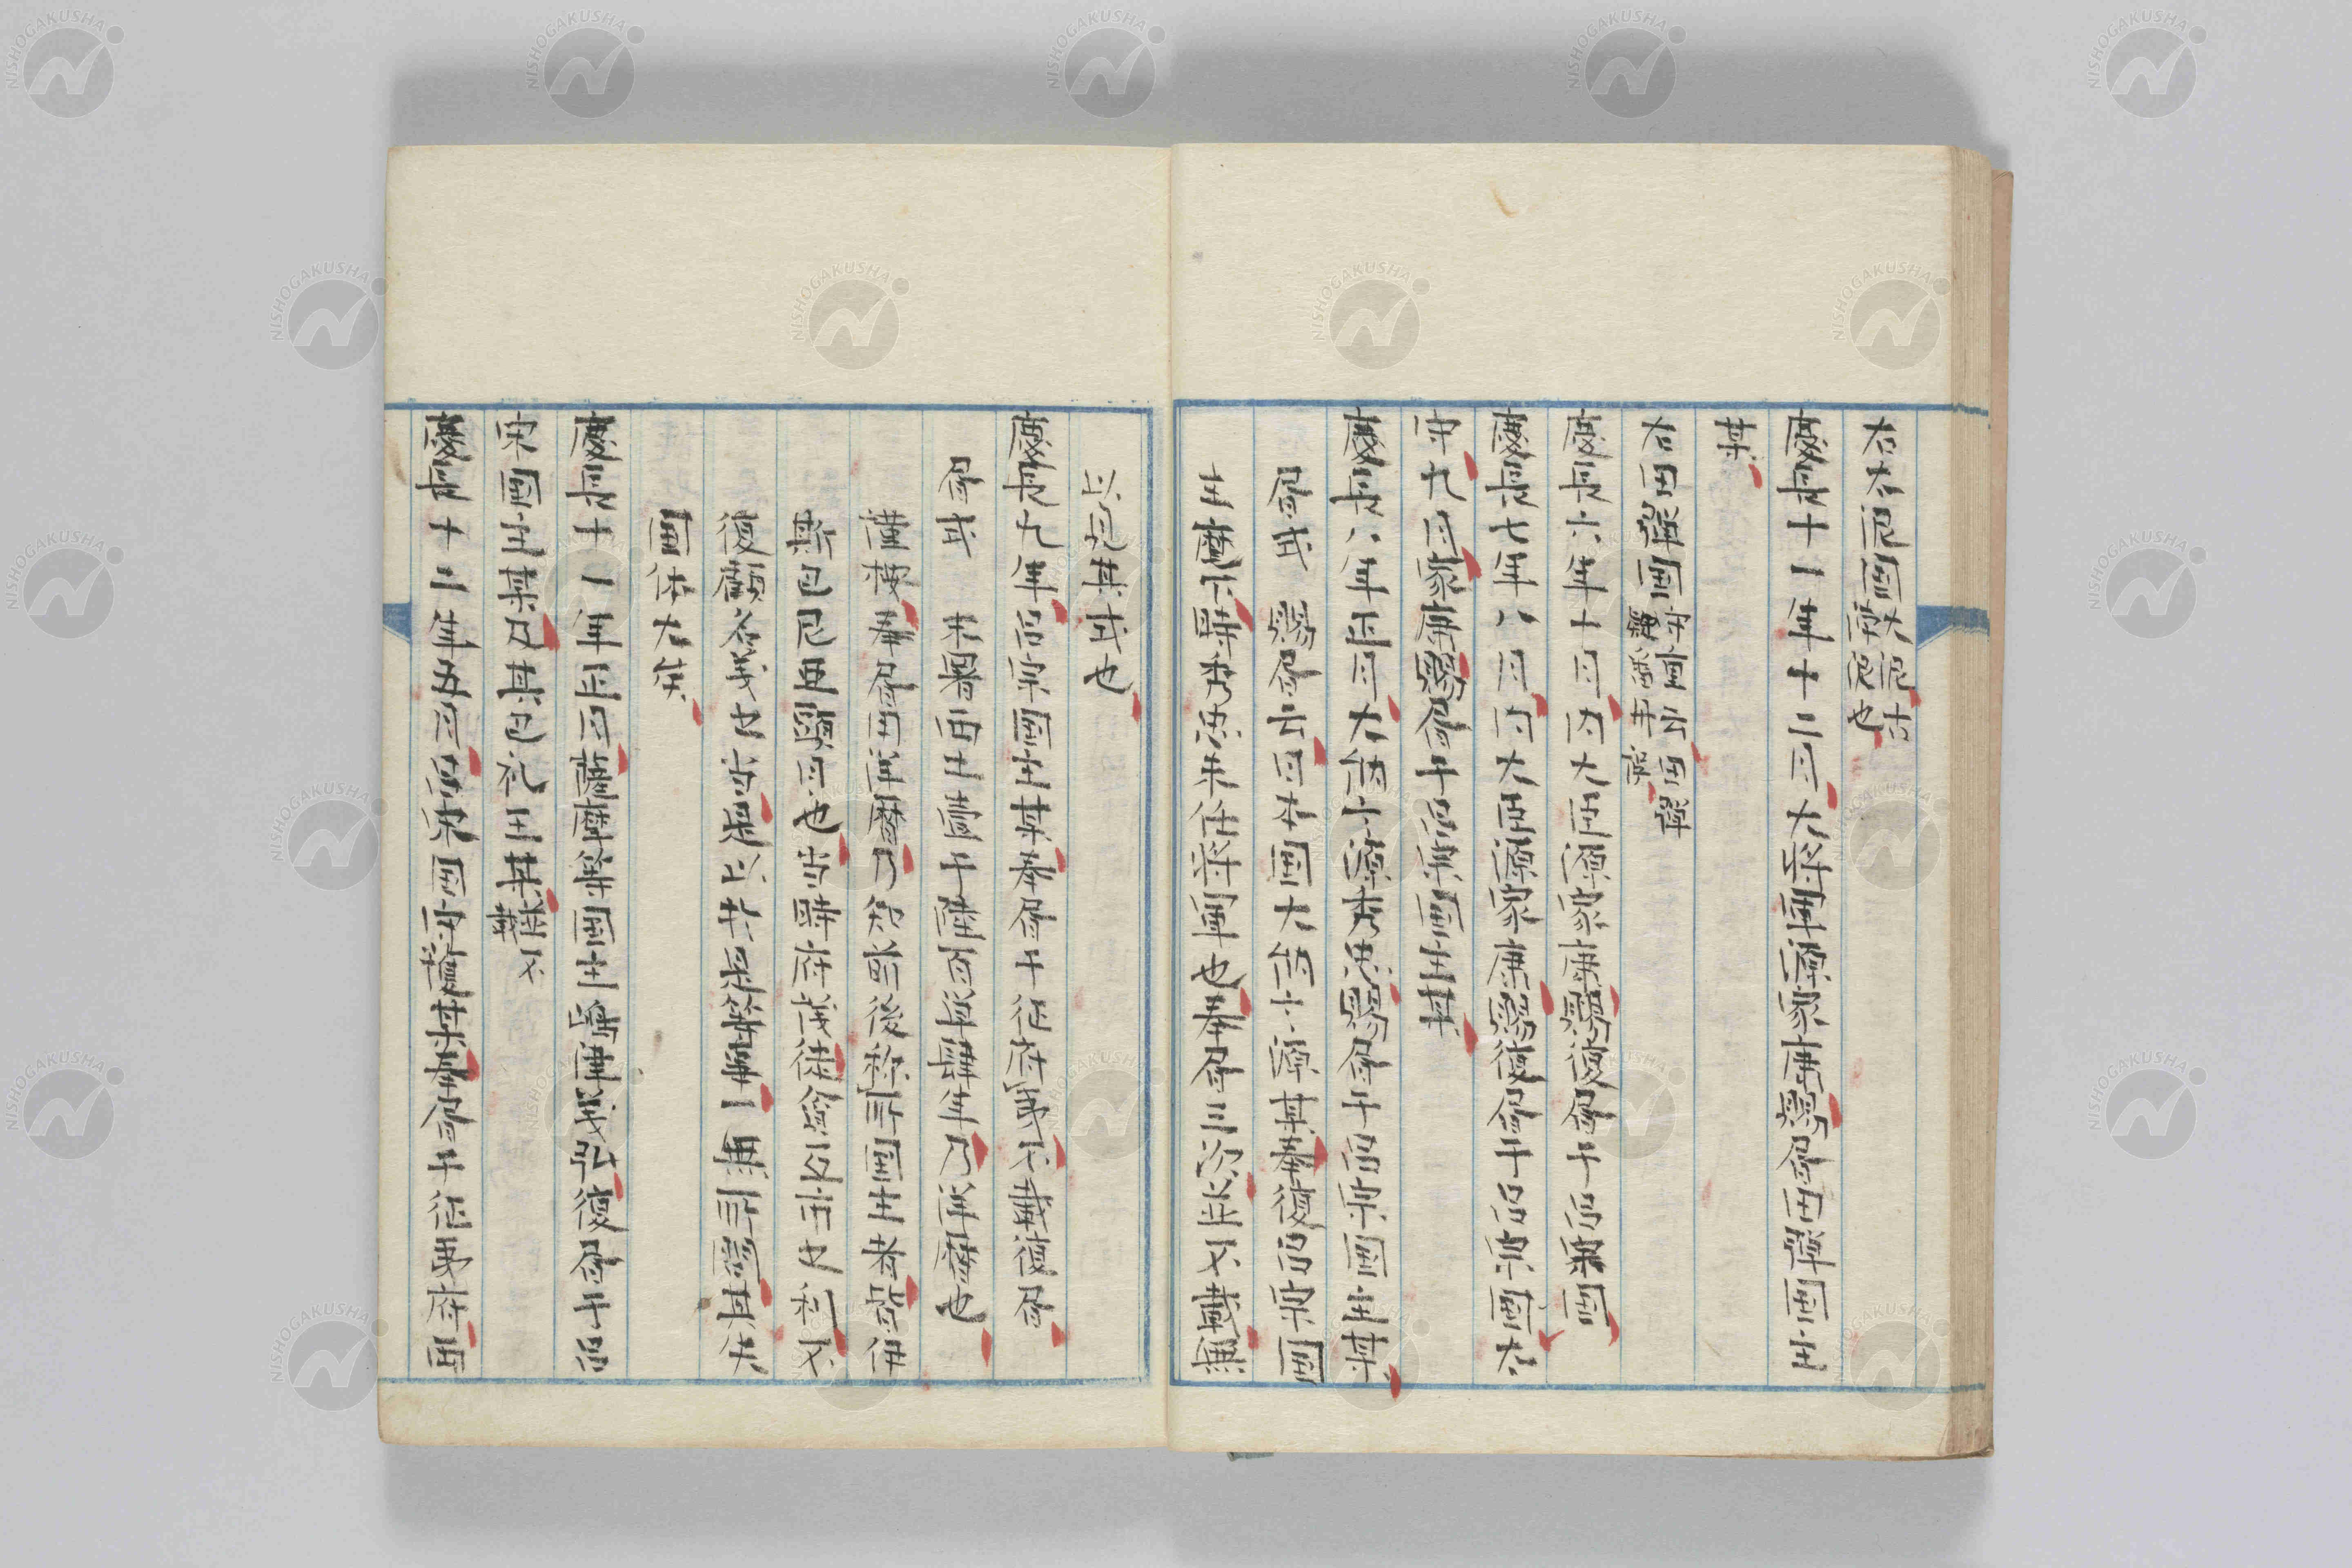 右太泥國大泥古
慶長十一年十二月大將軍源家康贈書田彈國主
某
右田彈國
慶長六年十月内大臣源家康贈復書于呂宋國
慶長七年八月内大臣源家康贈復書于呂宋國太
守九月家康贈書于呂宋國主某
慶長八年正月大納言源秀忠贈書于呂宋國主某
書式 贈書云日本國大納言源某奉復呂宋國
主麾下時秀忠未任將軍也奉書三次並不載無
以見其式也
慶長九年呂宋國主某奉書于征府我不載復書
書式 末署曰壹千陸百肆年乃洋曆也
謹按奉書用洋曆乃知前後称所国主者皆伊
斯巴尼亜職司也当時府議徒貪互市之利不
復顧名義也是以此等事一無所謂其失
國体大矣
慶長十一年正月薩摩等國主島津義弘復書于呂
宋國主某及某巴礼主某並不載
慶長十二年五月呂宋國守護某奉書于征夷府西